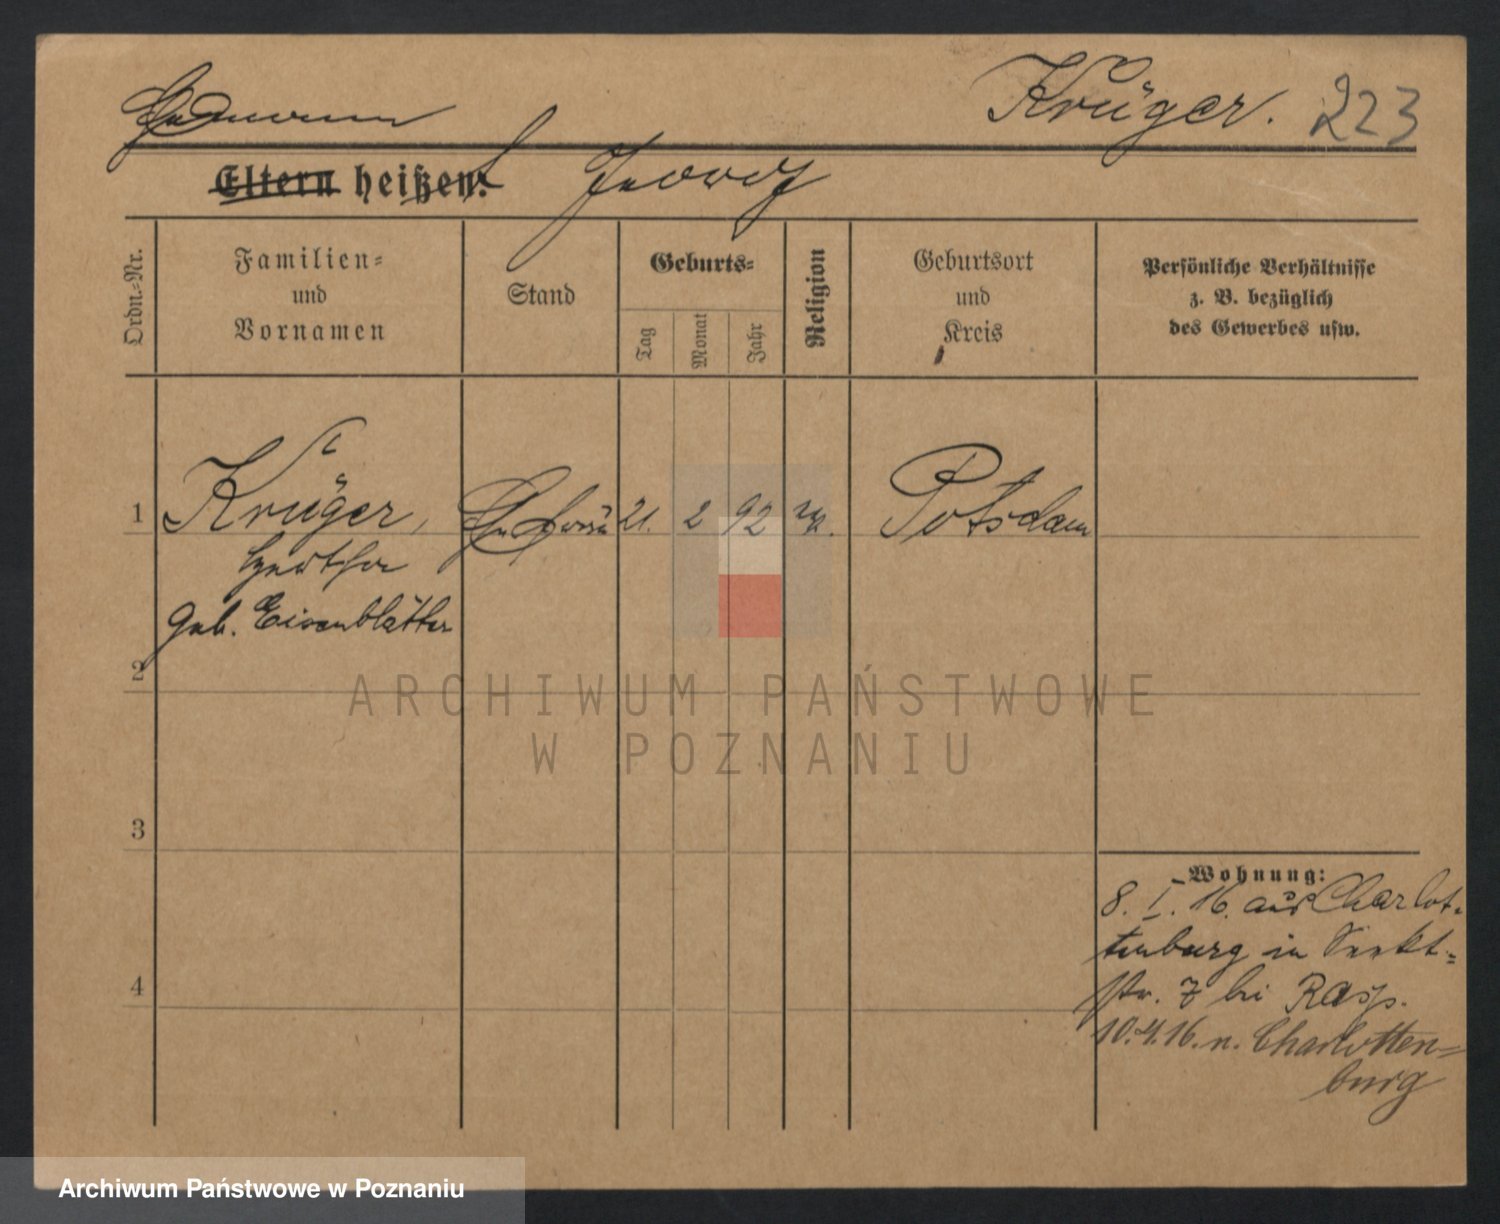 Ehemann Krüger. 223
Eltern heißen: Georg
Ordn.-Nr.
Familien-
und
Vornamen
Stand
Geburts-
Tag
Monat
Jahr
Religion
Geburtsort
und
Kreis
Persönliche Verhältnisse
z. B. bezüglich
des Gewerbes usw.
1 Krüger, Ehefrau 21. 2 92 Potsdam
geb. Eisenblätter
2
3
4
Wohnung:
8. I. 16. aus Charlot-
tenburg in
str. 7 bei Rasp.
10.4.16. n. Charlotten-
burg
ARCHIWUM PAŃSTWOWE
W POZNANIU
Archiwum Państwowe w Poznaniu